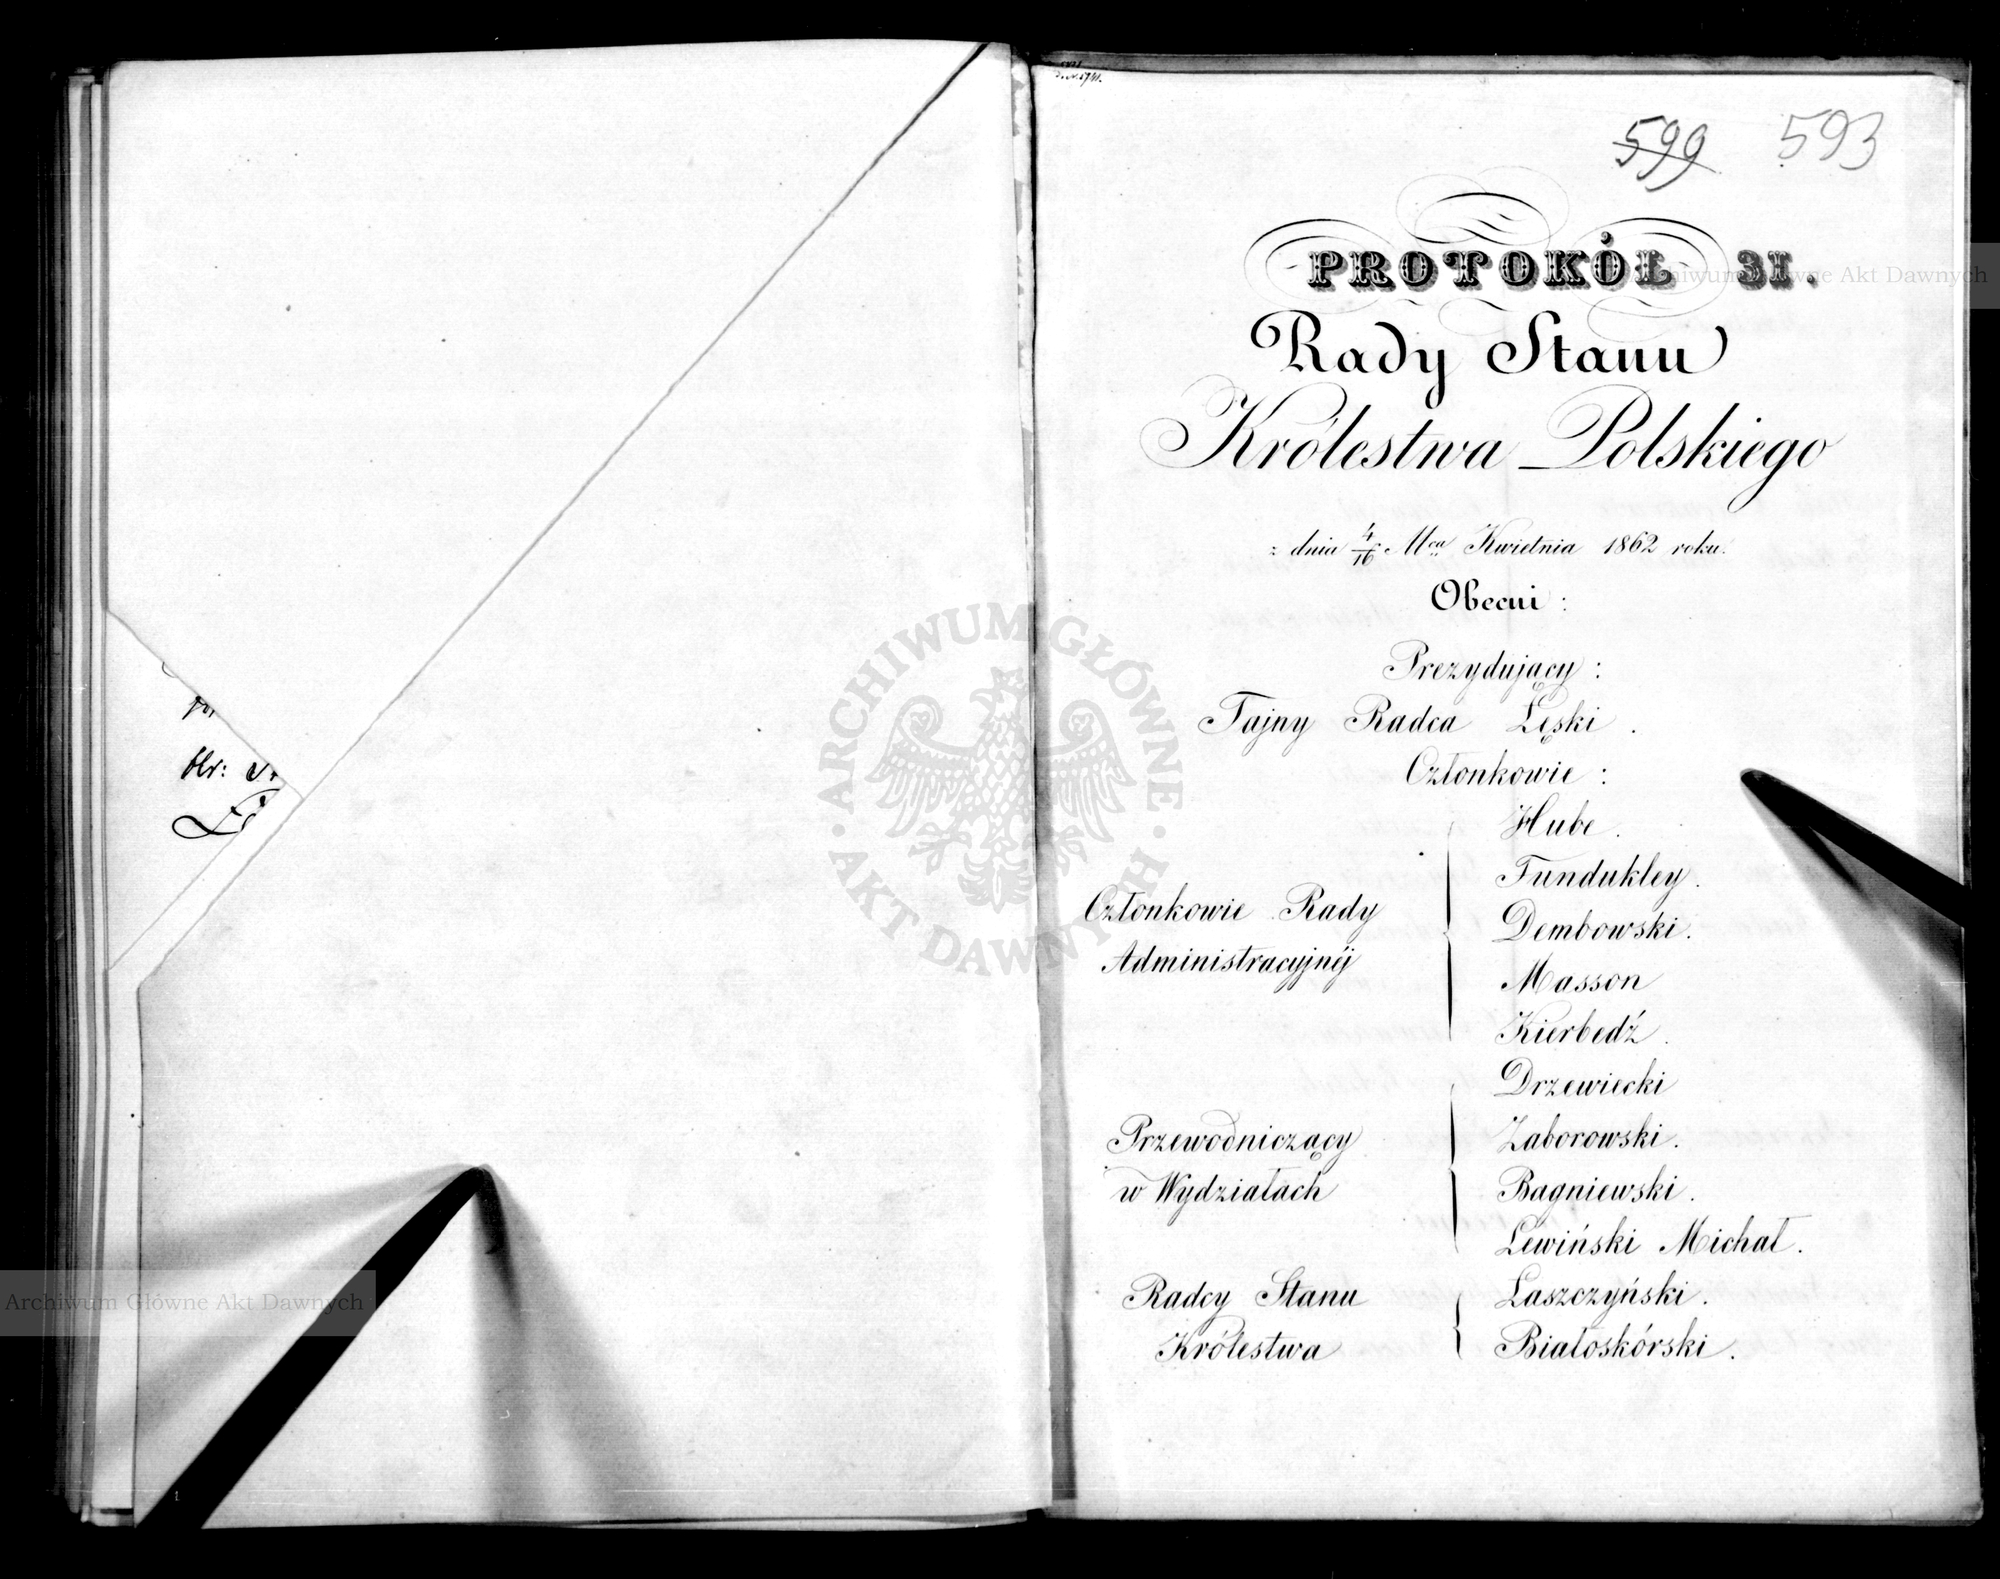 599 593
PROTOKÓŁ 31.
Rady Stanu
Królestwa Polskiego
z dnia 4/16 Mca Kwietnia 1862 roku.
Obecni:
Prezydujący:
Tajny Radca Łęski.
Członkowie:
Członkowie Rady
Administracyjnéj
Hube.
Fundukley.
Dembowski.
Masson
Kierbedź.
Przewodniczący
w Wydziałach
Drzewiecki
Zaborowski.
Bagniewski.
Lewiński Michał.
Radcy Stanu
Królestwa
Łaszczyński.
Białoskórski.
ARCHIWUM GŁÓWNE
AKT DAWNYCH
Archiwum Główne Akt Dawnych
Archiwum Główne Akt Dawnych